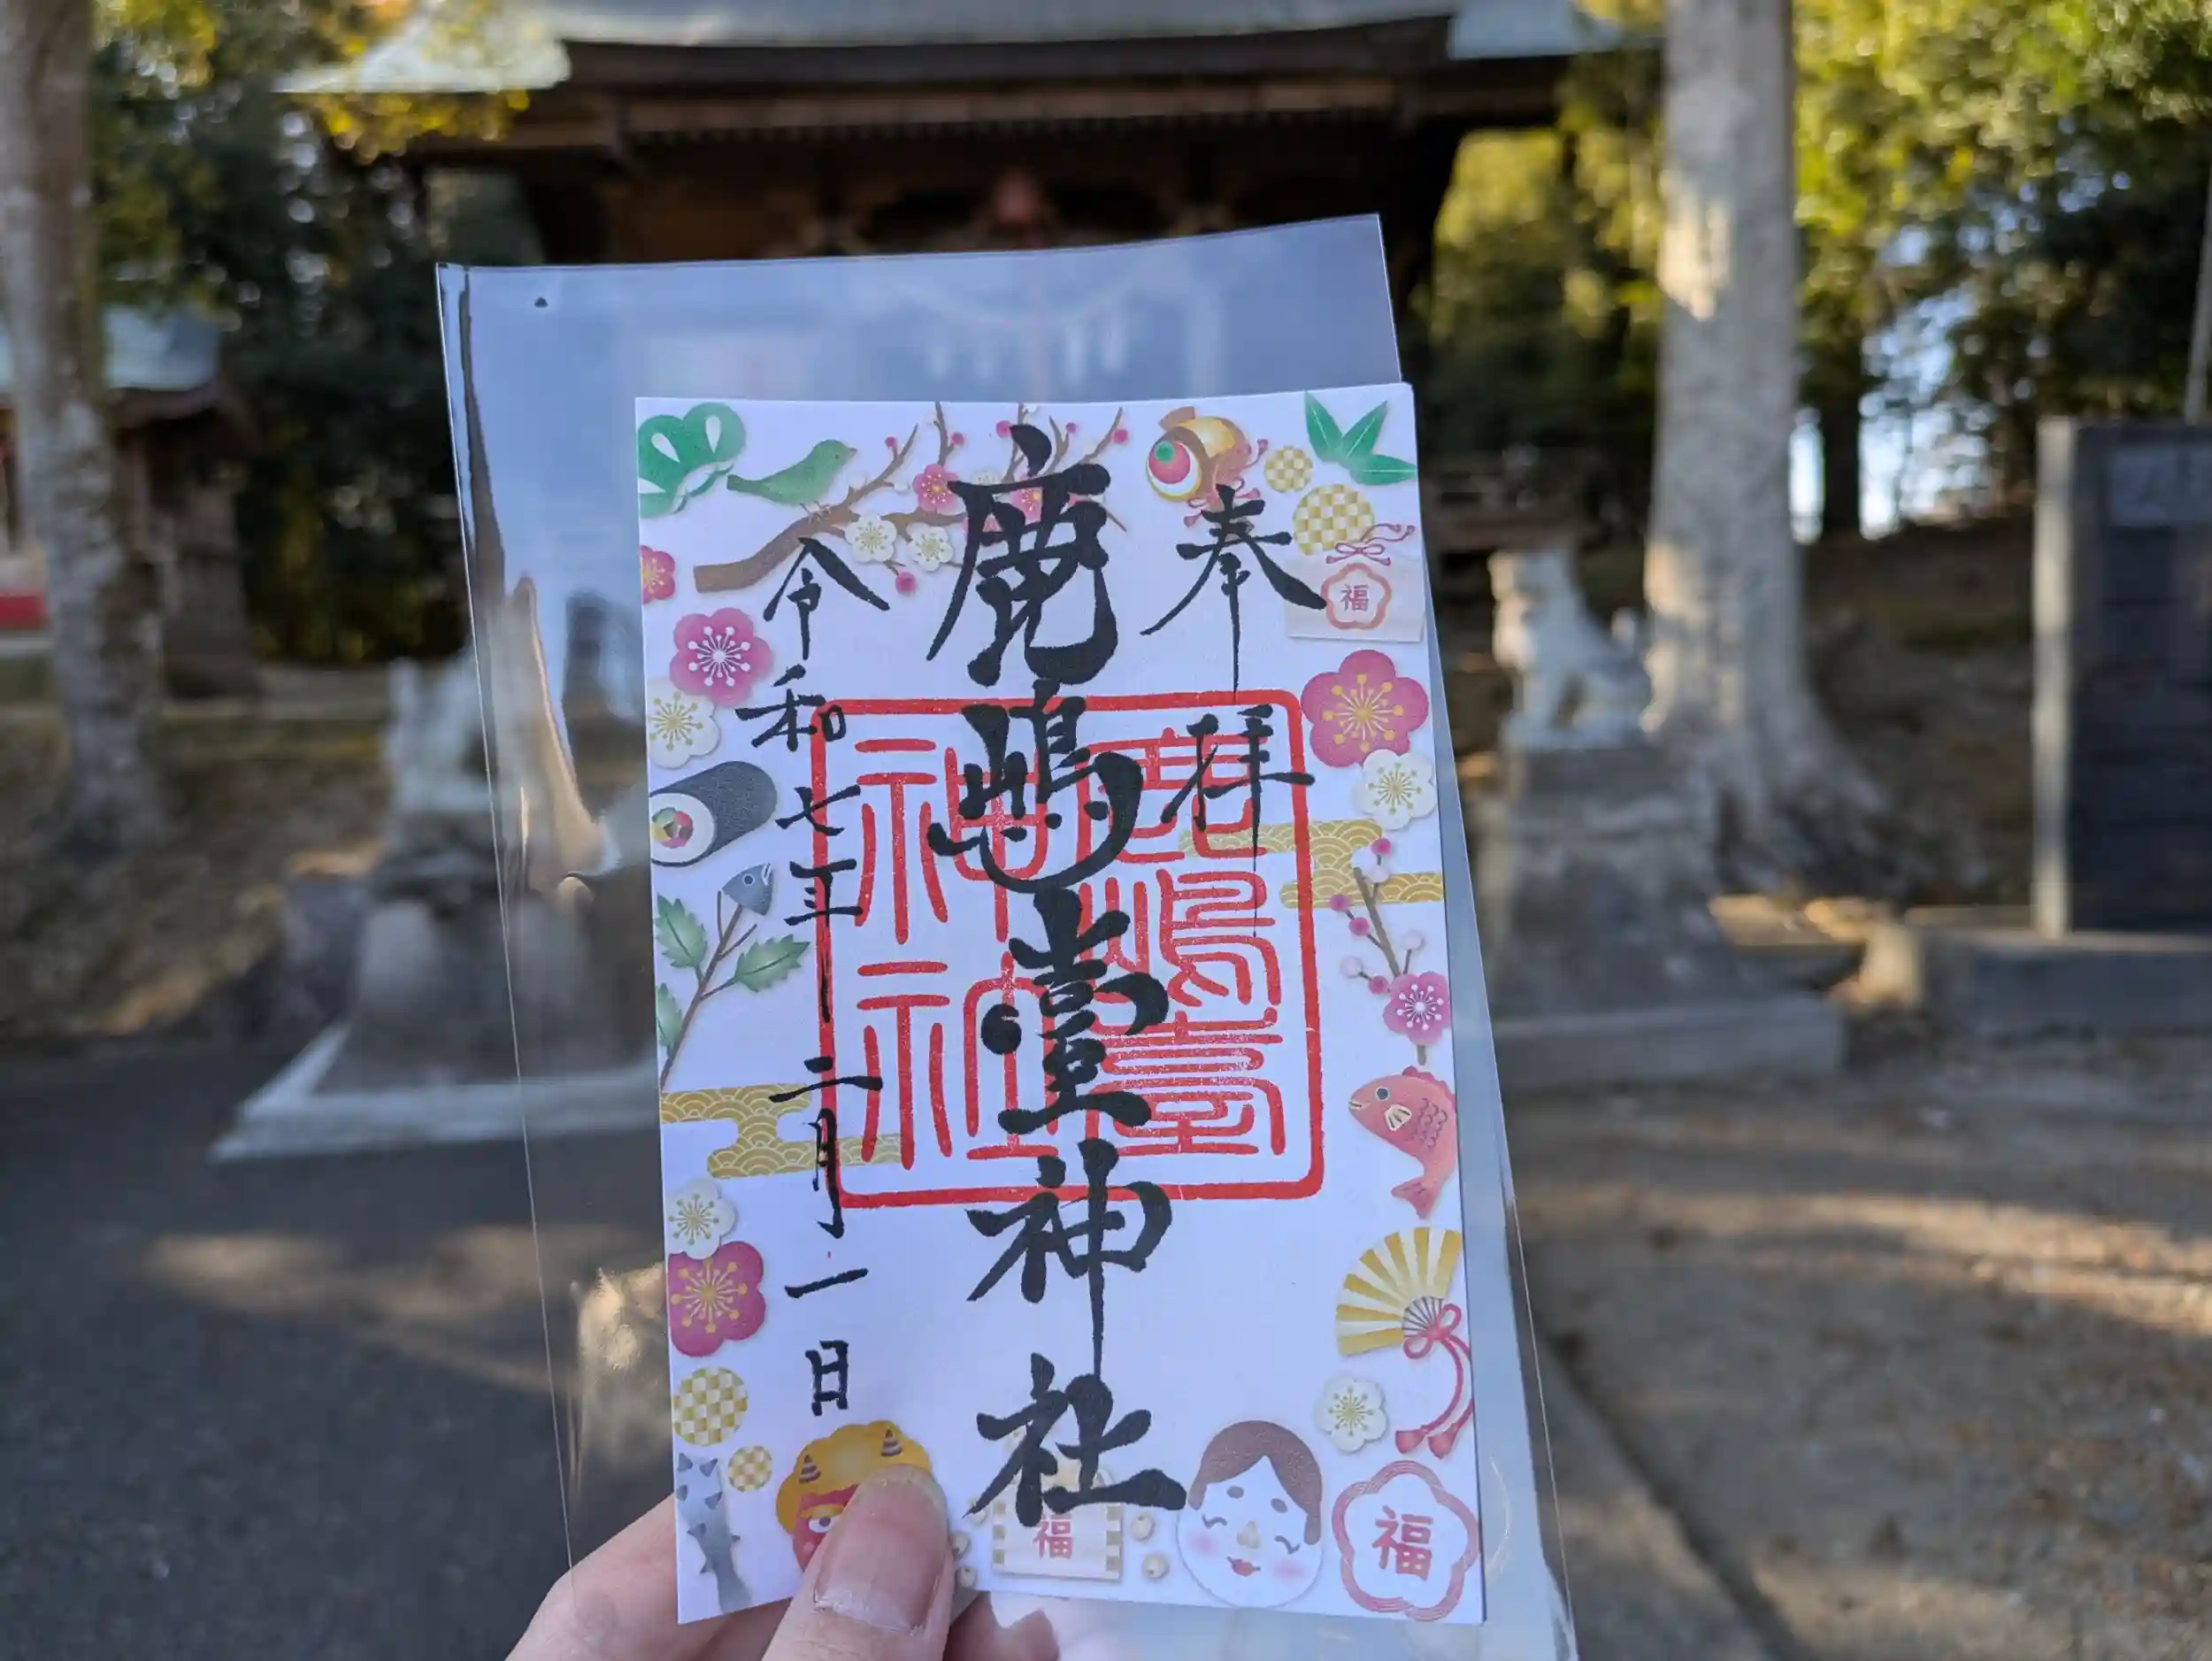 奉拝
鹿嶋臺神社
令和七年二月一日
鹿嶋臺
神社
福
福
福